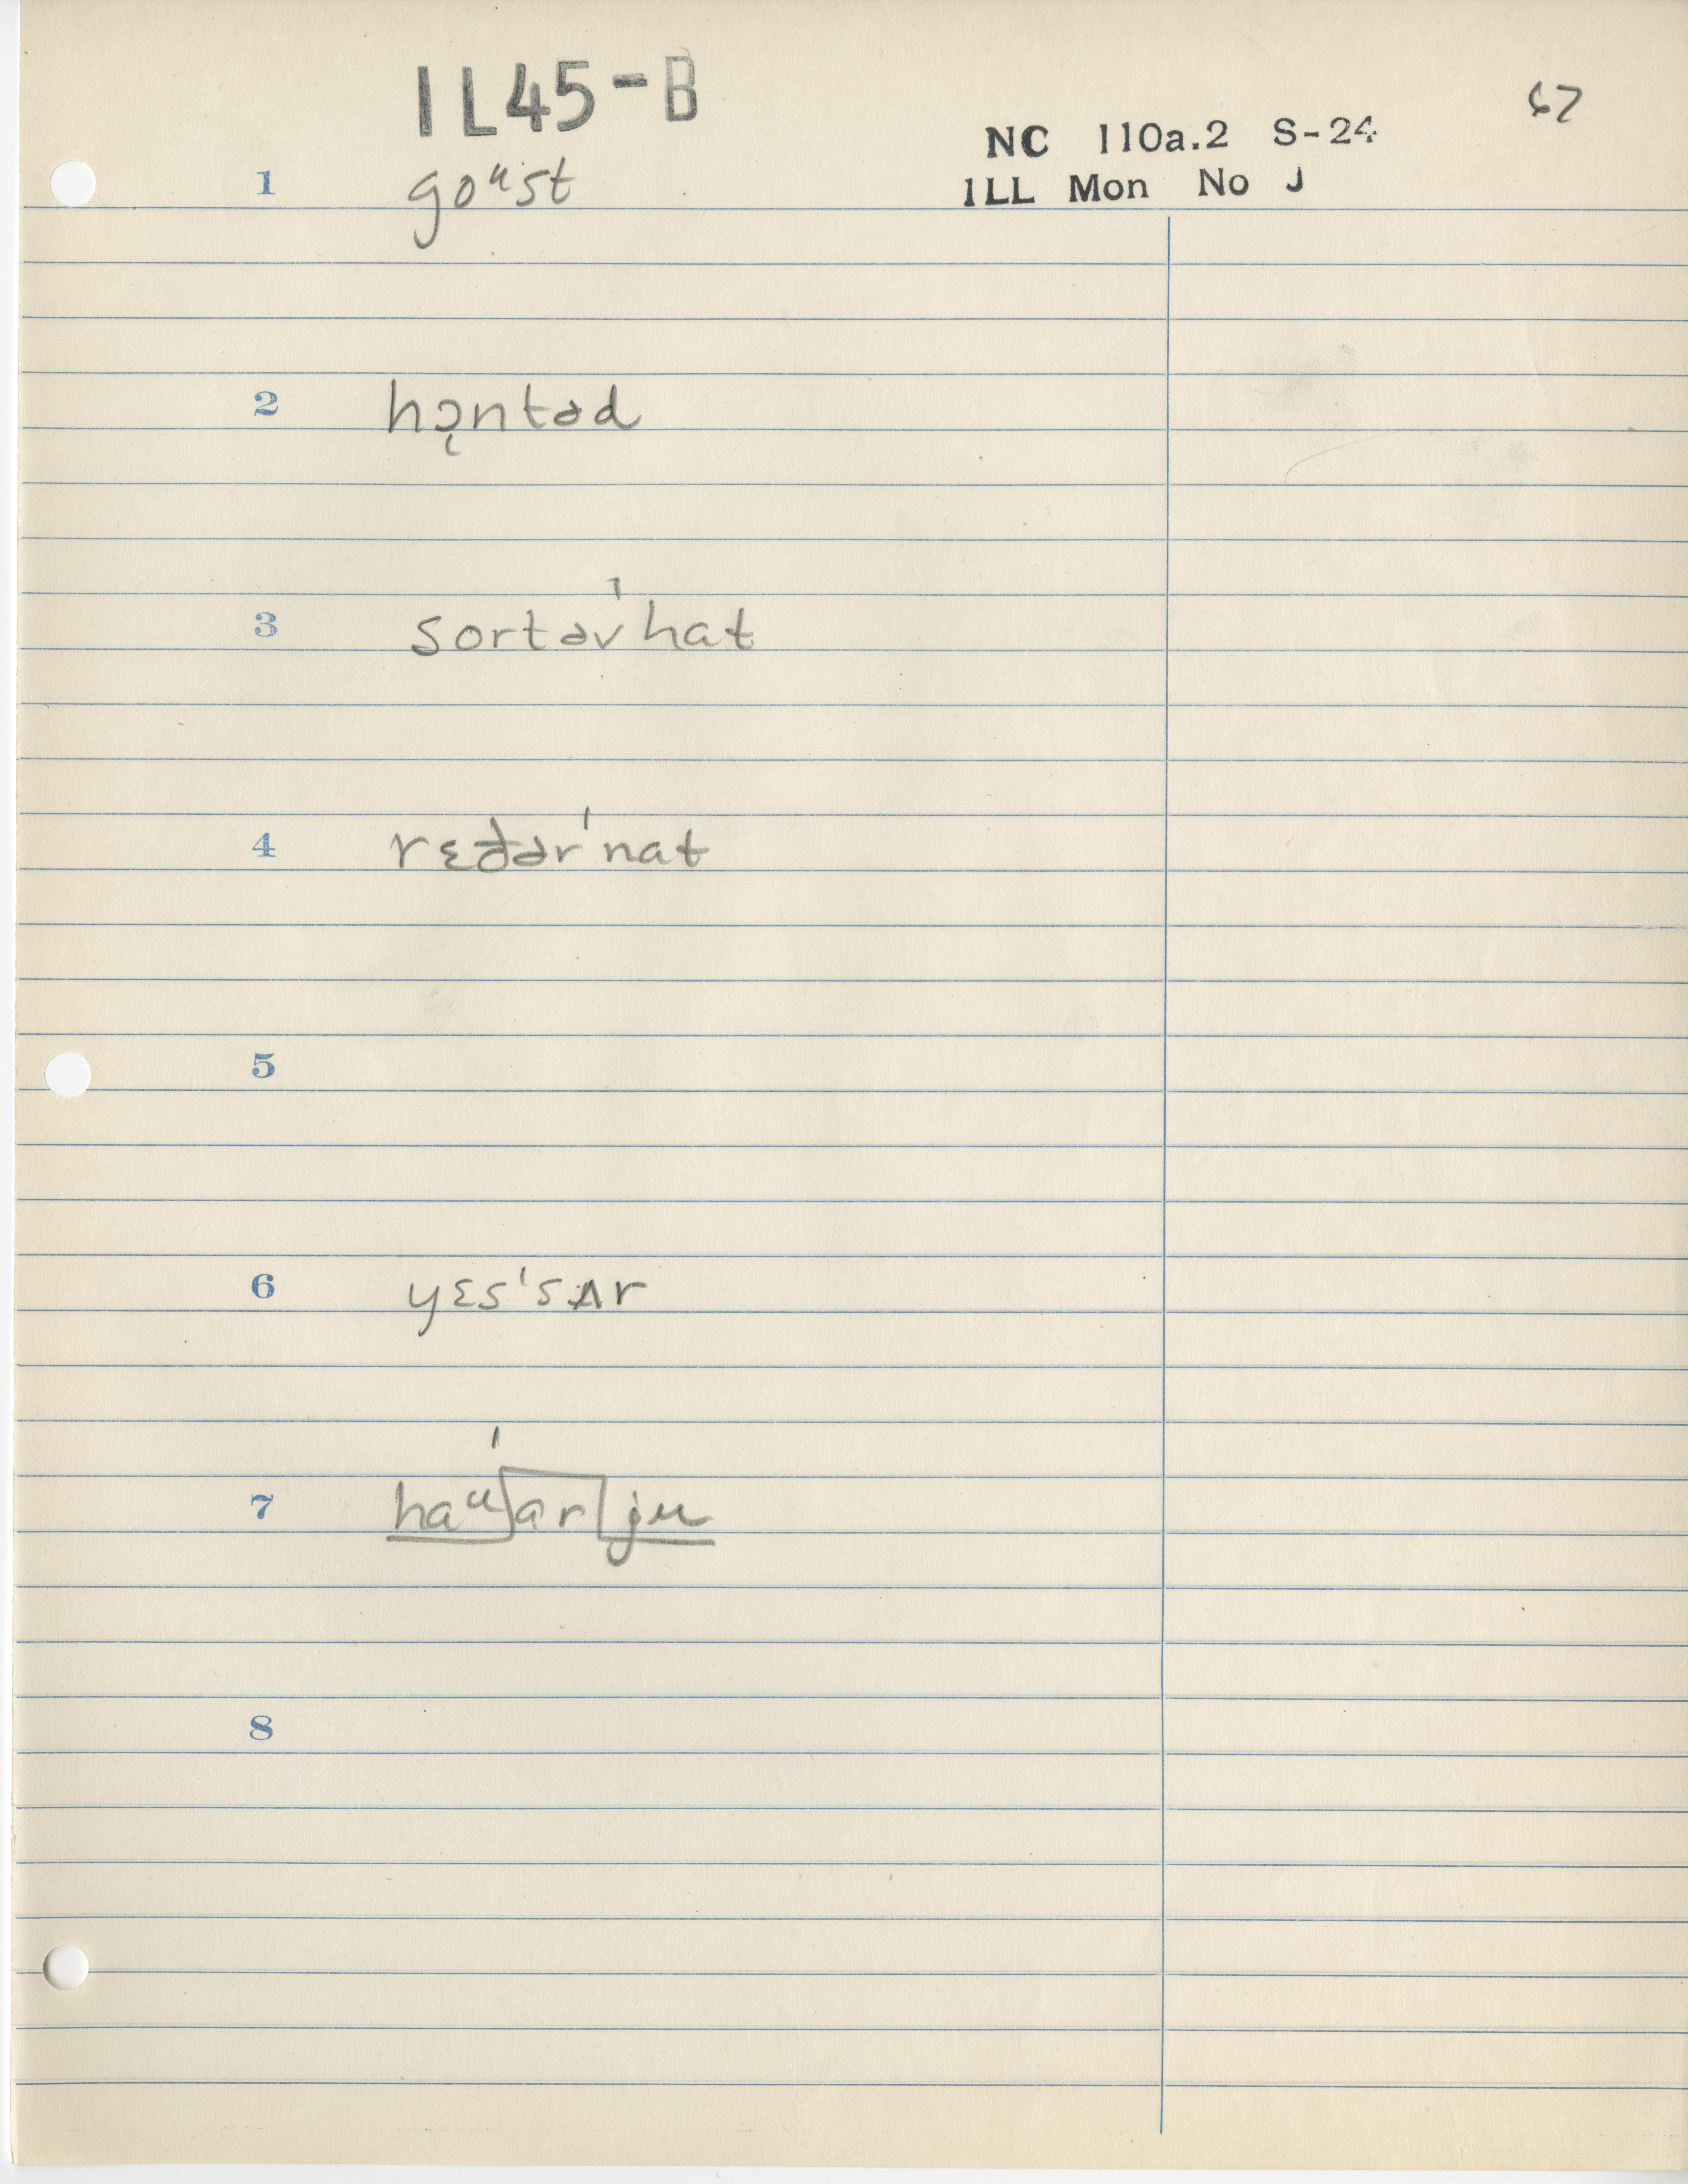 1L45-B
67
NC 110a.2 S-24
1LL Mon No J
1 goᵘst
2 hɔ̨ntəd
3 sortəv'hat
4 rɛðər'nat
5
6 yɛs'sʌr
7 haᵘ ər ju
8